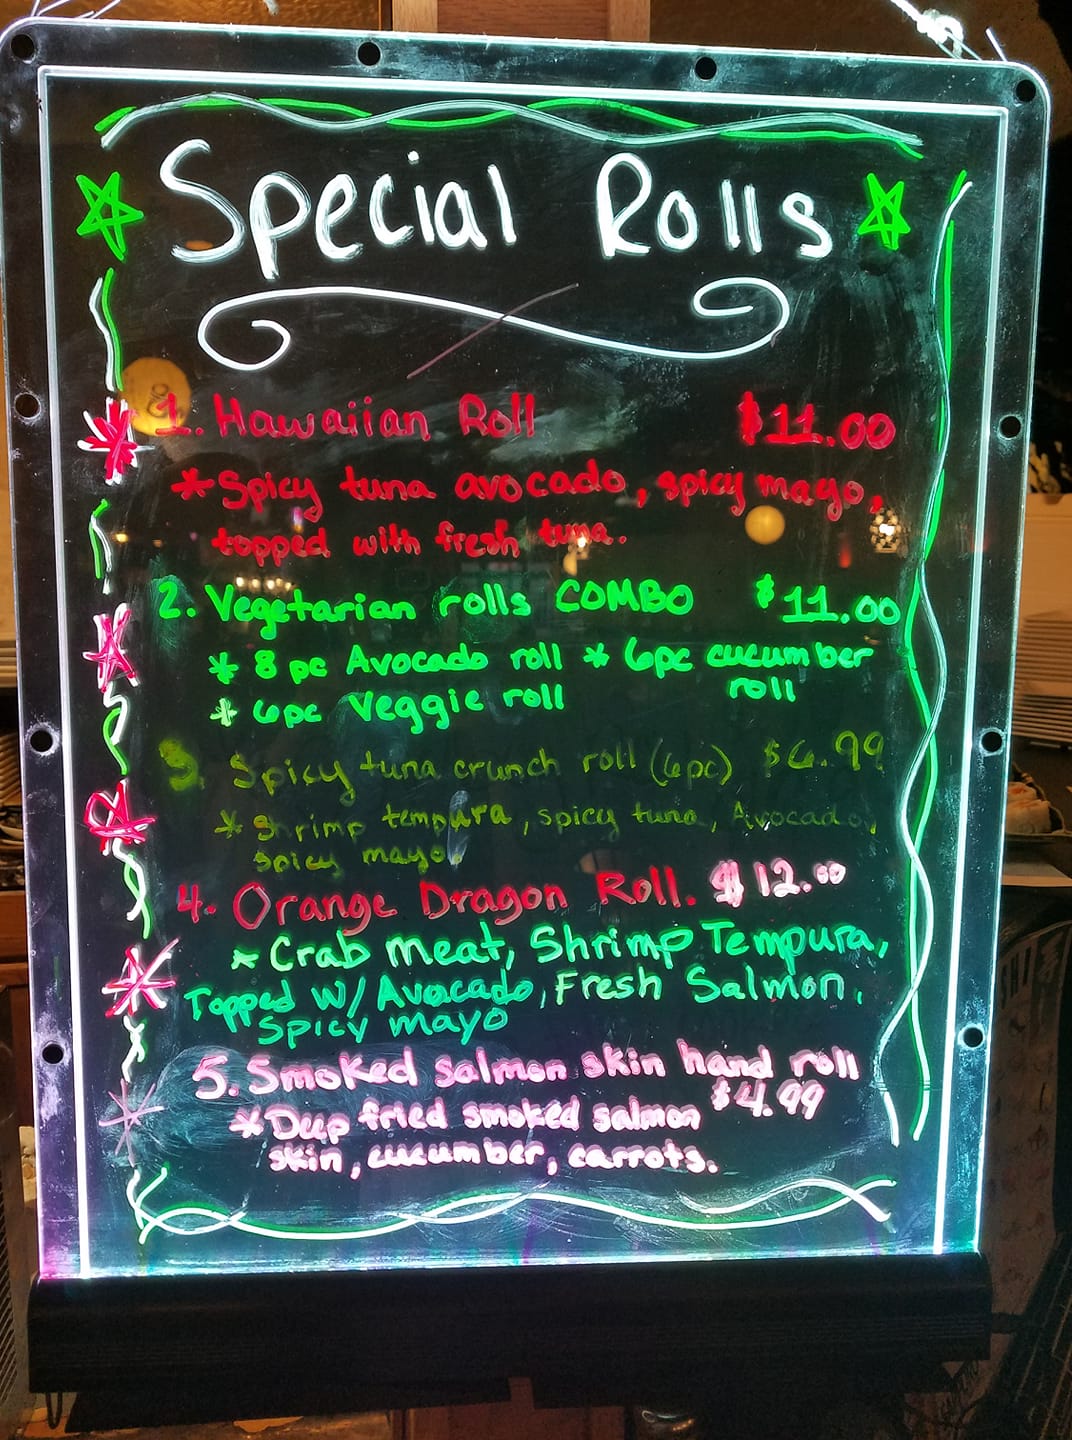 Special Rolls
1. Hawaiian Roll $11.00
*Spicy tuna avocado, spicy mayo,
topped with fresh tuna.
2. Vegetarian rolls COMBO $11.00
* 8 pc Avocado roll * 6pc cucumber
roll
* 6pc Veggie roll
3. Spicy tuna crunch roll (6pc) $6.99
* Shrimp tempura, spicy tuna, Avocado,
spicy mayo.
4. Orange Dragon Roll. $12.00
* Crab meat, Shrimp Tempura,
Topped W/ Avocado, Fresh Salmon,
Spicy mayo
5. Smoked salmon skin hand roll
$4.99
*Deep fried smoked salmon
skin, cucumber, carrots.